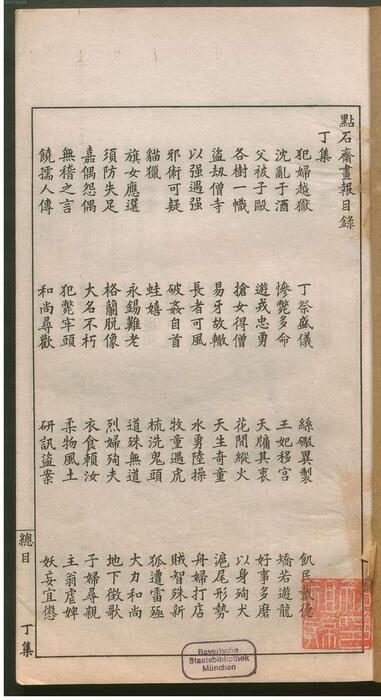 點石齋畫報目錄
丁集
犯婦越獄 丁祭盛儀 絲緞異製 飢民戴德
沈亂于酒 慘斃多命 王妃移宮 矯若遊龍
父被子毆 遊戎忠勇 天牖其衷 好事多磨
各樹一幟 搶女得僧 花間縱火 以身殉犬
盜劫僧寺 易牙故轍 天生奇童 滬尾形勢
以强遇强 長者可風 水勇陸操 舟婦打店
邪術可疑 破姦自首 牧童遇虎 賊智殊新
貓獵 蛙嬉 梳洗鬼頭 狐遭雷殛
旗女應選 永錫難老 道殊無道 大力和尚
須防失足 格蘭脫像 烈婦殉夫 地下徵歌
嘉偶怨偶 大名不朽 衣食賴汝 子婦尋親
無稽之言 犯斃牢頭 柔物風土 主翁虐婢
饒孺人傳 和尚尋歡 研訊盜案 妖妄宜懲
總目
丁集
Bayerische
Staatsbibliothek
München